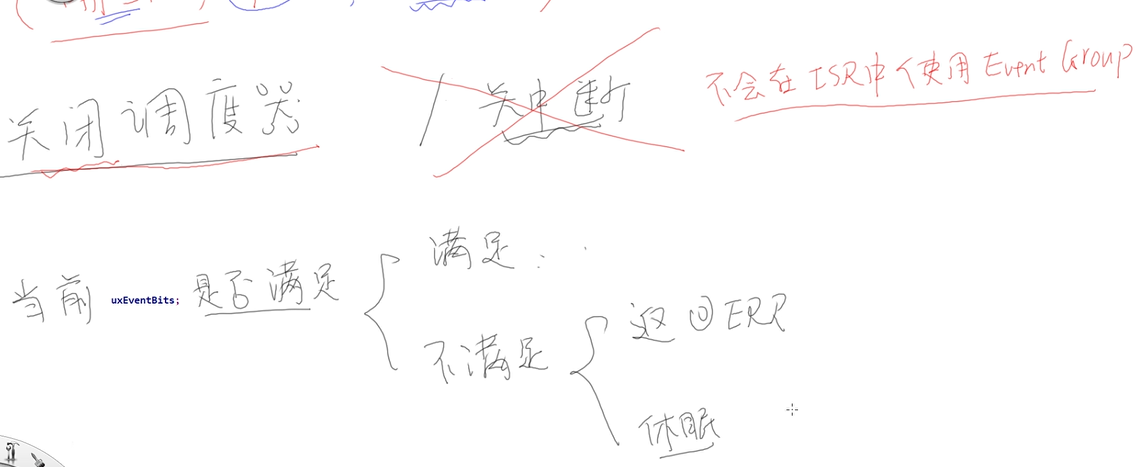 关闭调度器 / 关中断 不会在ISR中使用Event Group
满足：
当前 uxEventBits; 是否满足
返回ERR
不满足
休眠